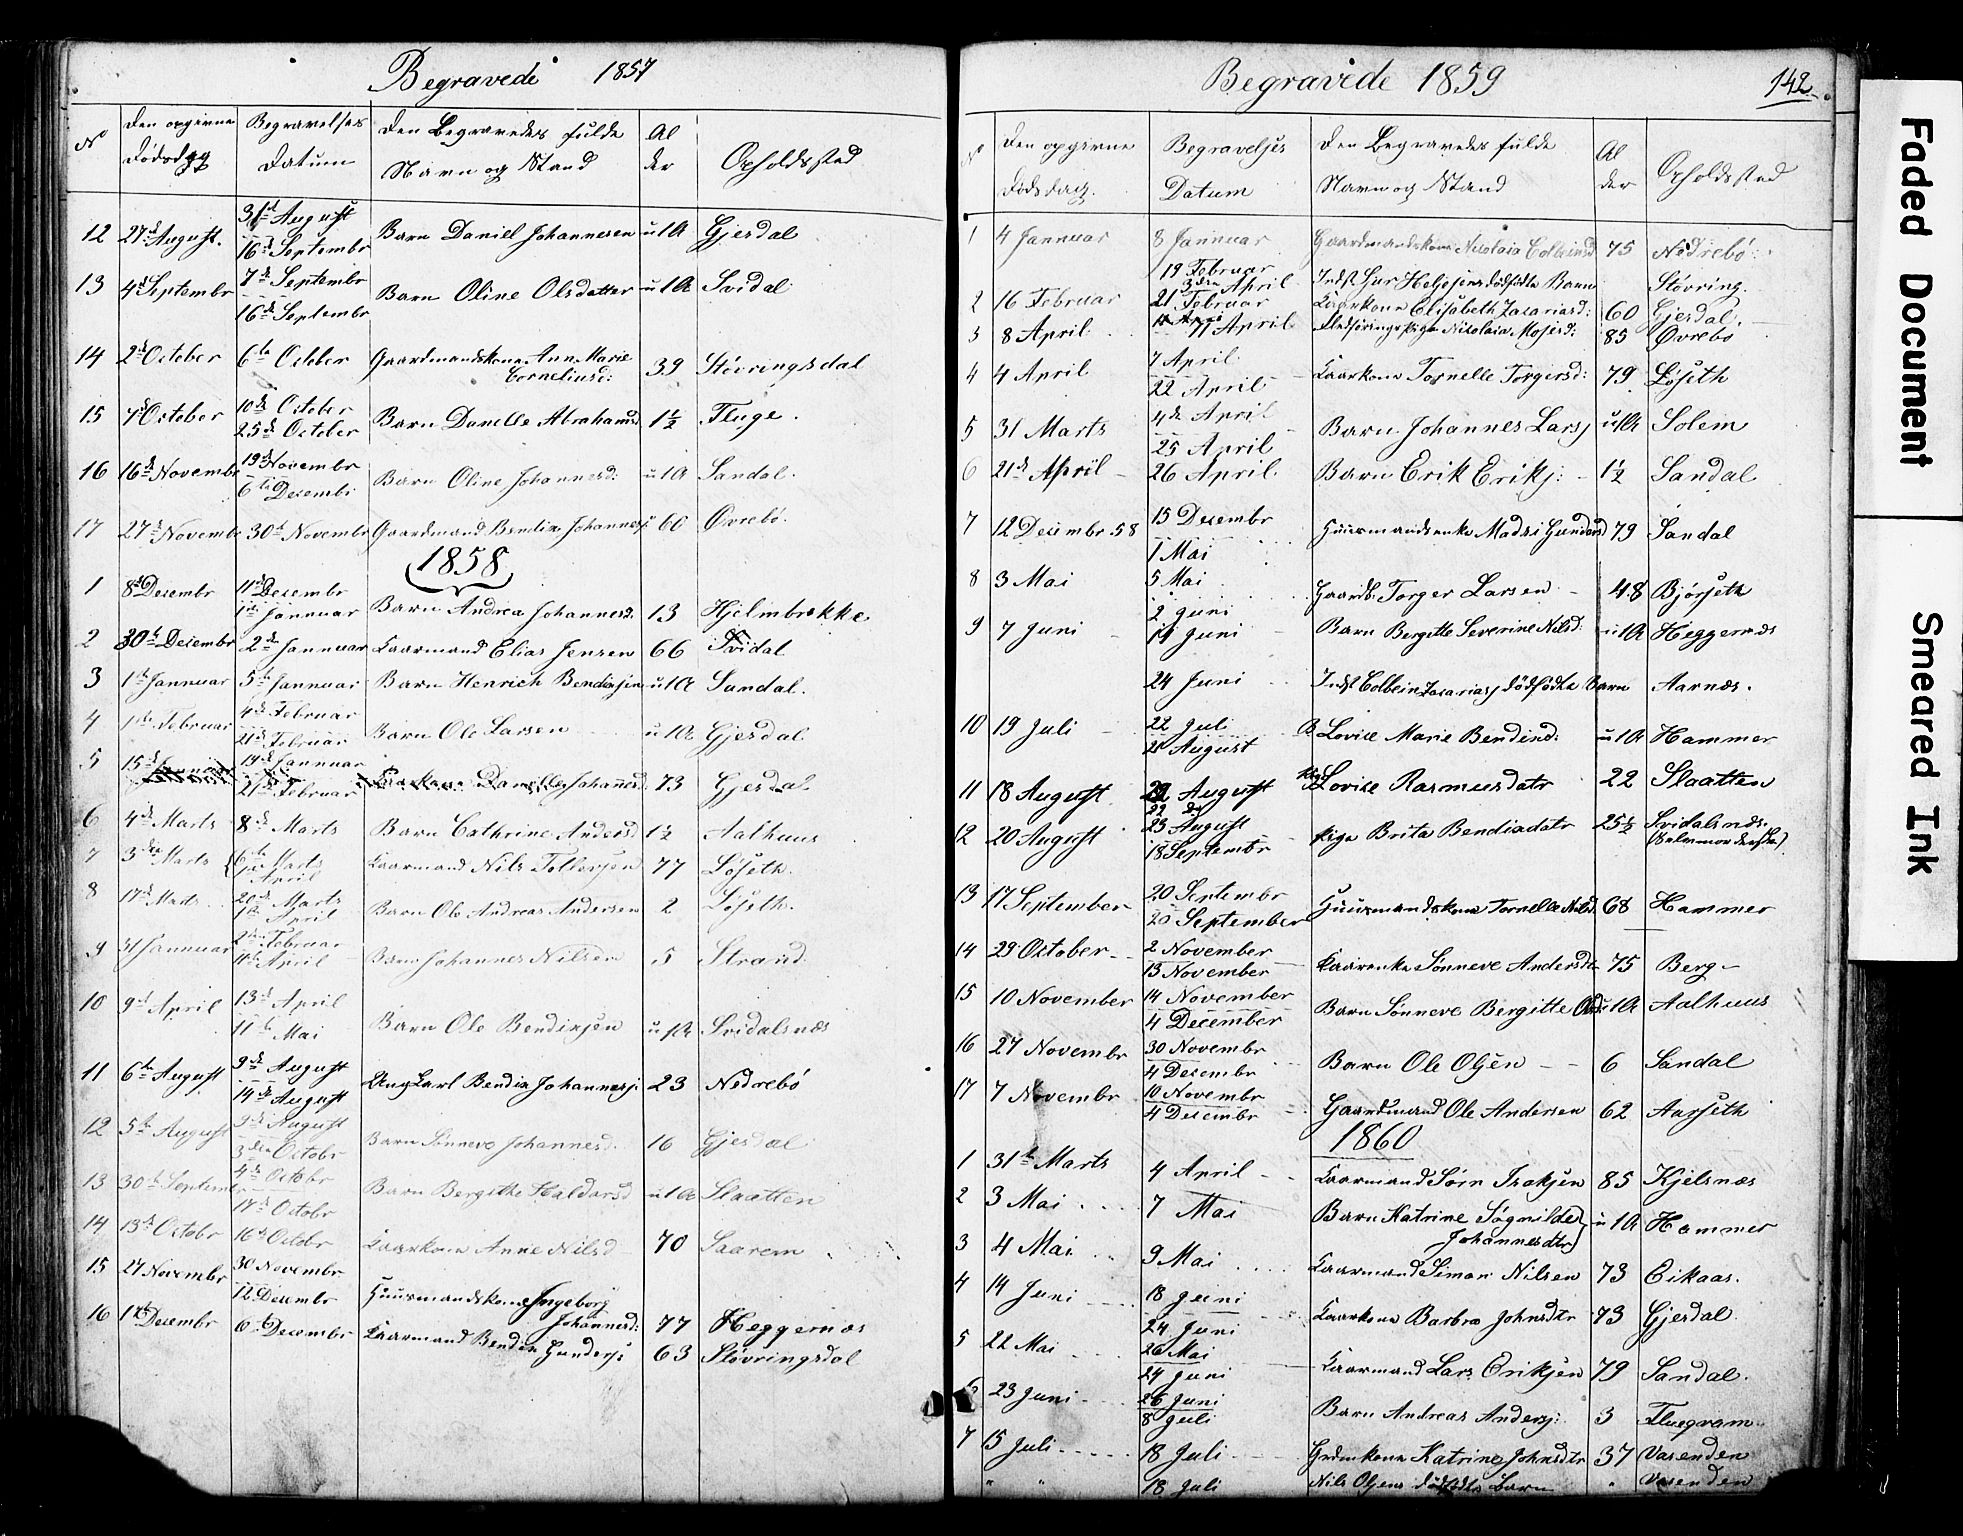 Begravede 1857
No
Den opgivne Dødsdag
Begravelses Datum
Den Begravedes fulde Navn og Stand
Alder
Opholdssted
12 27de August. 31te August 16de Septembr Barn Daniel Johannesen u 1 A Gjesdal
13 4de Septembr 7de Septembr 16de Septembr Barn Oline Olsdatter u 1 A Svidal
14 2de October 6te October Gaardmandskone Ann Marie Corneliusd: 39 Støvringsdal
15 7de October 10de October 25de October Barn Danelle Abrahamsd 1½ Fluge.
16 16de Novembr 19de Novembr 6te Decembr Barn Oline Johannesd: u 1 A Sandal.
17 27de Novembr 30te Novembr Gaardmand Bendix Johannesj: 60 Øvrebö.
1858
1 8de Decembr 11de Decembr 1ste Jannuar Barn Andrea Johannesd. 13 Hjelmbrekke
2 30te Decembr 2de Jannuar Kaarmand Elias Jensen 66 Svidal
3 1ste Jannuar 5te Jannuar Barn Henrich Bendixsen u 1 A Sandal.
4 1ste Februar 4de Februar 21de Februar Barn Ole Larsen u 1 A Gjesdal
5 15de Jannuar 19de Jannuar 21de Februar Kaarkone Danelle Johannesd. 73 Gjesdal
6 4de Marts 8de Marts Barn Cathrine Andersd 1½ Aalhuus
7 3die Marts 6te Marts April Kaarmand Nils Tollevsen 77 Löseth.
8 17de Marts 20de Marts 1ste April Barn Ole Andreas Andersen 2 Löseth.
9 31 Jannuar 2de Februar 11te April Barn Johannes Nilsen 5 Strand.
10 9de April 13de April 11te Mai Barn Ole Bendixsen u 1 A Svidalsnæs
11 6te August 9de August 14de August Ungkarl Bendix Johannesj: 23 Nedrebö
12 5te August 9de August 3die Octobr Barn Sönneve Johannesd. 16 Gjesdal
13 30te Septembr 4de Octobr 17de Octobr Barn Bergithe Haldorsd u 1 A Slaatten
14 13de Octobr 16de Octobr Kaarkone Anne Nilsd 70 Saarem
15 27 Novembr 30 Novembr 12 Decembr Huusmandskone Ingeborg Johannesd: 77 Heggernæs
16 1ste Decembr 6te Decembr Kaarmand Bendix Gundersj: 63 Støvringsdal
Begravede 1859
142
No
Den opgivne Dødsdag.
Begravelses Datum
Den Begravedes fulde Navn og Stand
Alder
Opholdssted
1 4 Jannuar 8 Jannuar Gaardmandskone Nicolaia Colbeinsd 75 Nedrebö
19 Februar 3die April Inds. Dödfödte Barn Stövring.
2 16 Februar 21 Februar Kaarkone Elisabeth Zacariasd: 60 Gjesdal.
3 8 April 11 April Nicolaia Mosesd: 85 Øvrebö
4 4 April 7 April 22 April Kaarkone Tornelle Torgersd: 79 Löseth
5 31 Marts 4de April 25 April Barn Johannes Larsj u 1 A Solem
6 21de April 26 April Barn Erik Erikj: 1½ Sandal
7 12 Decembr 58 15 Decembr 1 Mai Huusmandsenke Madsi Gundersd 79 Sandal
8 3 Mai 5 Mai 2 Juni Gaardb. Torger Larsen 48 Björseth
9 7 Juni 11 Juni Barn Bergitte Severine Nilsd: u 1 A Heggernæs
24 Juni Inds. Colbein Zacariasj dödfödte Barn Aarnæs.
10 19 Juli 22 Juli 21 August B Lovise Marie Bendixd: u 1 A Hammer
11 18 August 22 August Lovise Rasmusdatr 22 Slaatten
12 20 August 23 August 18 Septembr Pige Brita Bendixdatr 25½ Svidalsnæs.
13 17 September 20 Septembr 20 September Huusmandskone Tornelle Nilsd 68 Hammer
14 29 October 2 November 13 November Kaarenke Sönneve Andersdtr 75 Berg
15 10 November 14 November 4 December Barn Sönneve Bergitte Olsd u 1 A Aalhuus
16 27 Novembr 30 Novembr 4 Decembr Barn Ole Olsen 6 Sandal
17 7 Novembr 10 Novembr 4 Decembr Gaardmand Ole Andersen 62 Aarseth
1860
1 31te Marts 4 April Kaarmand Sörn Isaksen 85 Kjelsnæs
2 3 Mai 7 Mai Barn Katrine Søgnilde Johannesdtr u 1 A Hammer
3 4 Mai 9 Mai Kaarmand Simon Nilsen 73 Eikaas.
4 14 Juni 18 Juni 24 Juni Kaarkone Barbra Johnsdtr 73 Gjesdal.
5 22 Mai 26 Mai 24 Juni Kaarmand Lars Eriksen 79 Sandal.
6 23 Juni 26 Juni 8 Juli Barn Andreas Andersj: 3 Fluegram.
7 15 Juli 18 Juli Grdmkone Katrine Johnsdtr 37 Vasenden
" " 18 Juli Nils Olsens dödfödte Barn " Vasenden
Faded Document
Smeared Ink